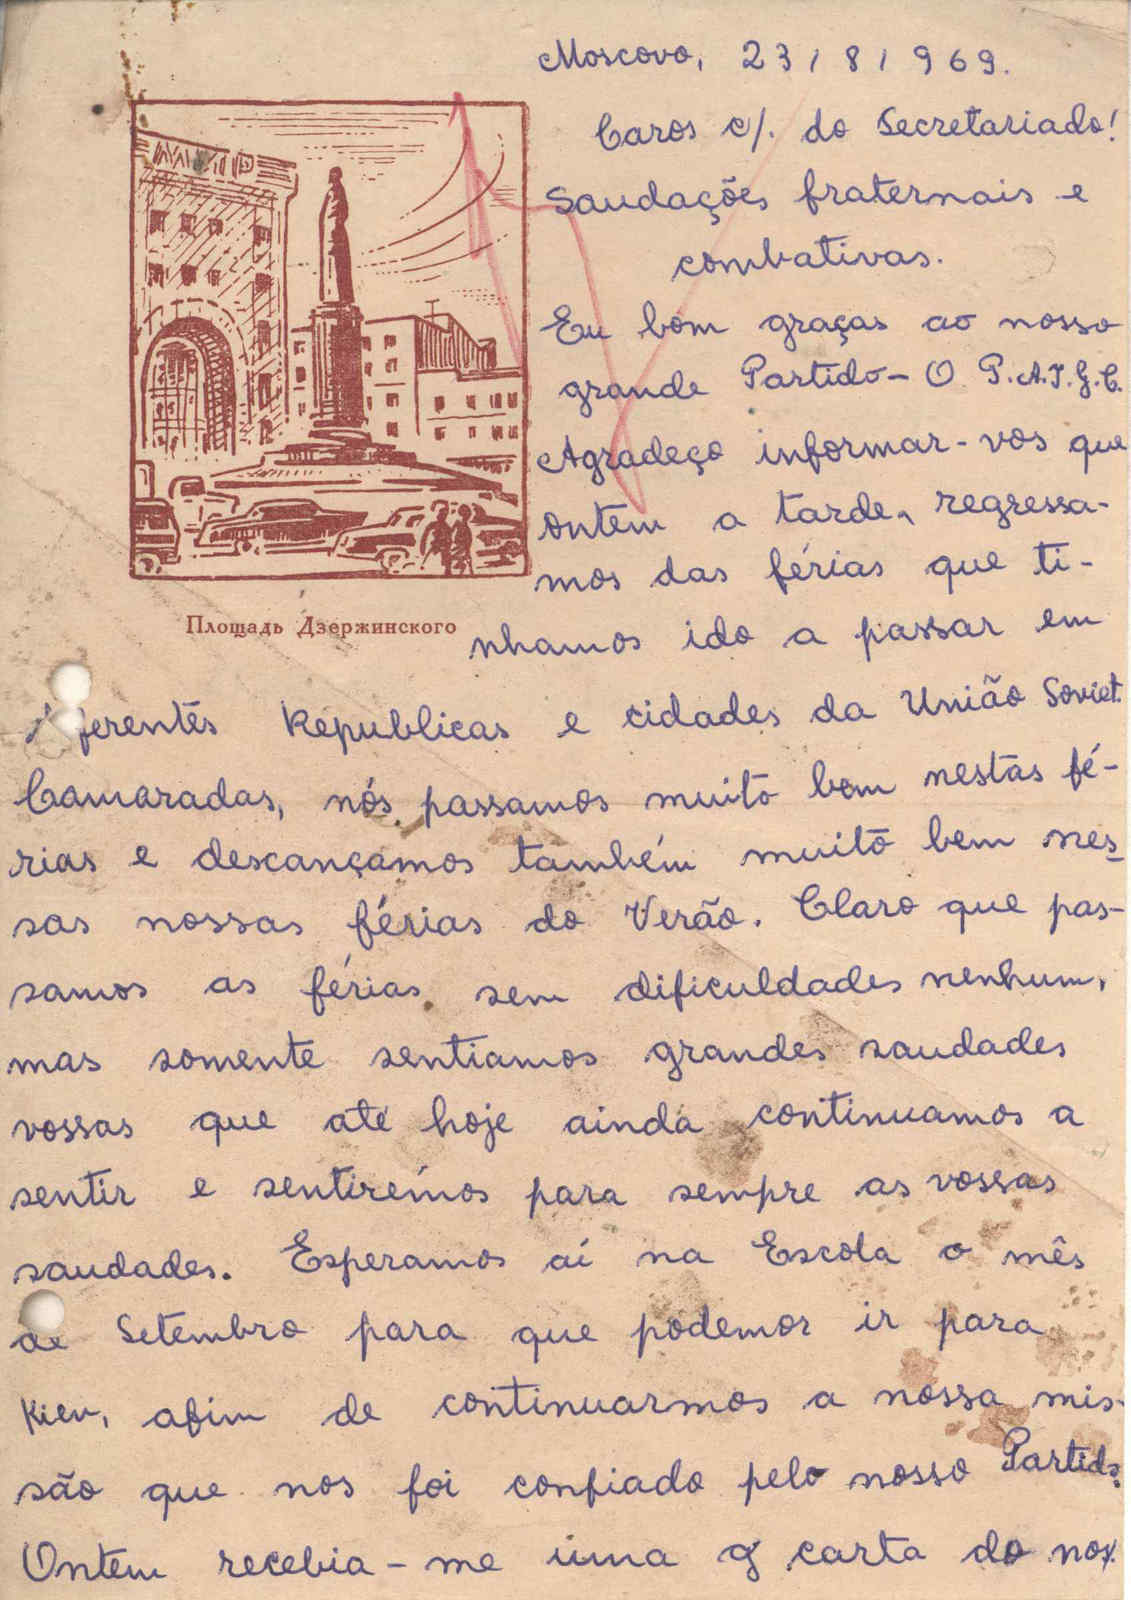 Moscovo, 23/8/969.
Caros c/. do Secretariado!
Saudações fraternais e
combativas.
Eu bom graças ao nosso
grande Partido - O P.A.I.G.C.
Agradeço informar-vos que
ontem a tarde, regressa-
mos das férias que ti-
nhamos ido a passar em
Площадь Дзержинского
diferentes Republicas e cidades da União Soviet.
Camaradas, nós passamos muito bem nestas fé-
rias e descançamos também muito bem nes-
sas nossas férias do Verão. Claro que pas-
samos as férias sem dificuldades nenhum,
mas somente sentiamos grandes saudades
vossas que até hoje ainda continuamos a
sentir e sentirémos para sempre as vossas
saudades. Esperamos aí na Escola o mês
de Setembro para que podemor ir para
Kiev, afim de continuarmos a nossa mis-
são que nos foi confiado pelo nosso Partido.
Ontem recebia-me uma carta do